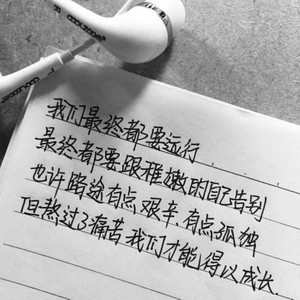 我们最终都要远行......
最终都要跟稚嫩的自己告别
也许路途有点艰辛.有点孤独
但熬过了痛苦我们才能得以成长.